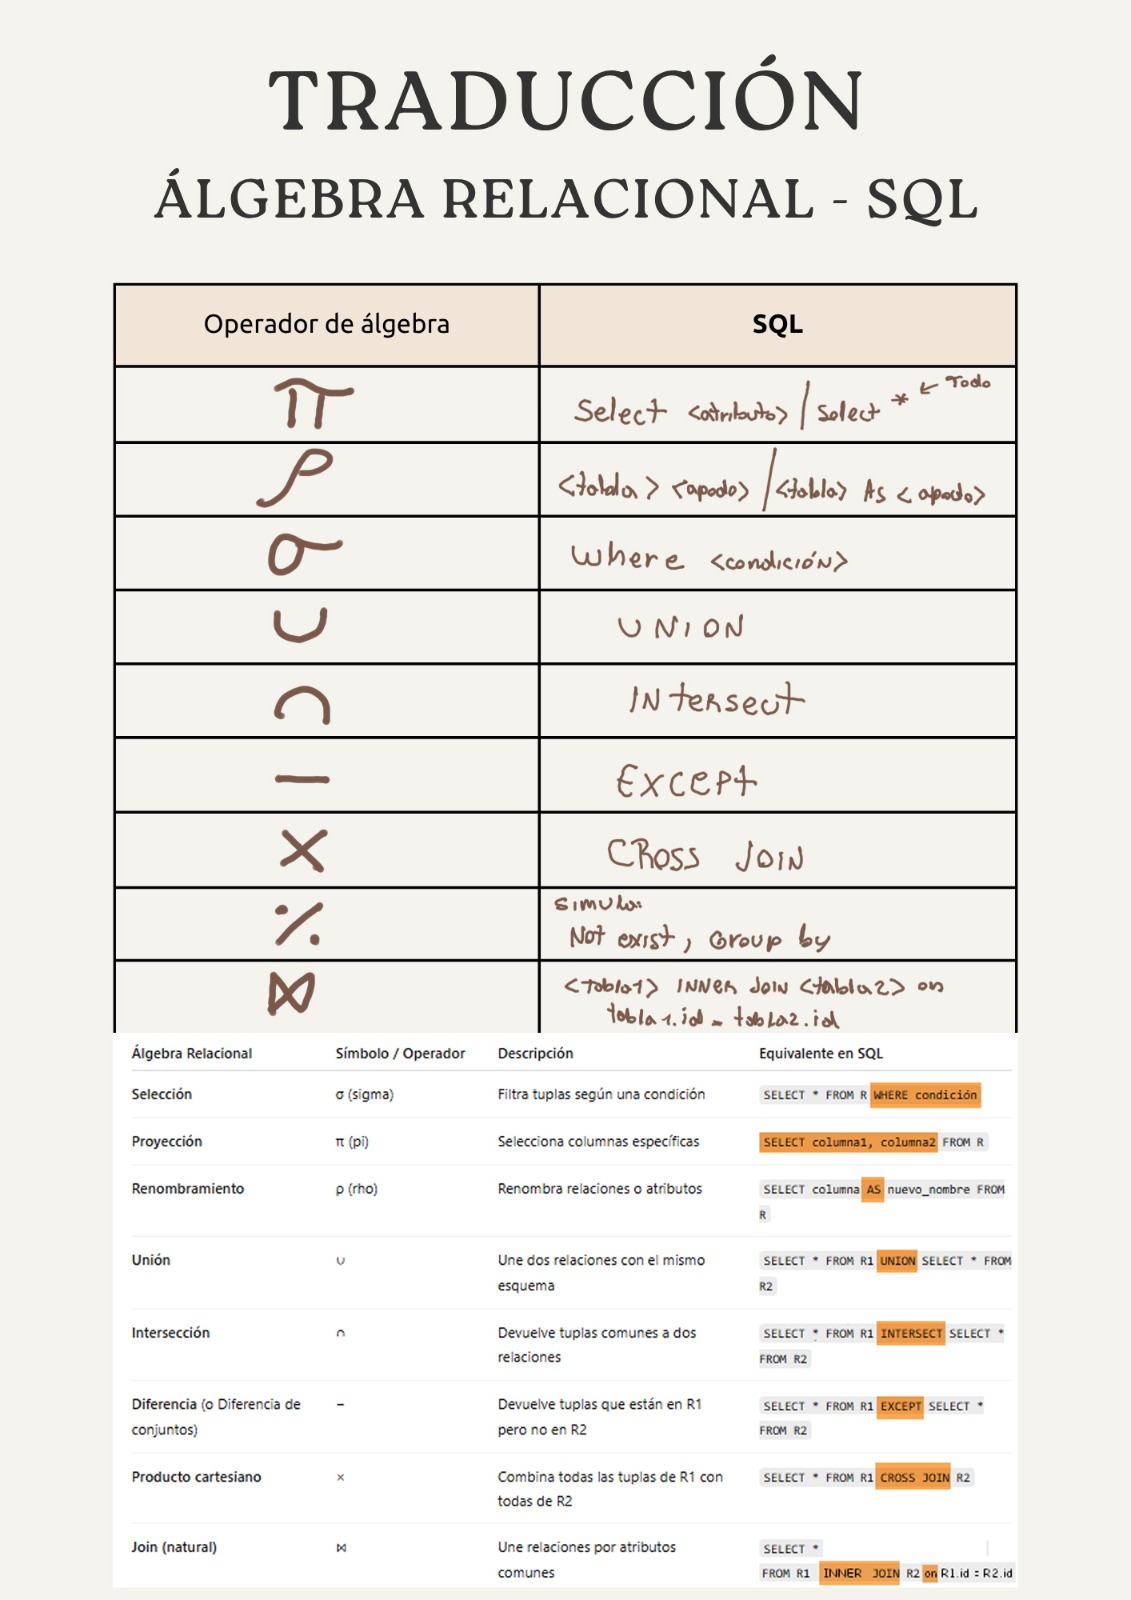 TRADUCCIÓN
ÁLGEBRA RELACIONAL - SQL
Operador de álgebra SQL
π Select <atributo> / Select * ← Todo
ρ <tabla> <apodo> / <tabla> AS <apodo>
σ Where <condición>
∪ UNION
∩ INtersect
− Except
× CRoss JOIN
simular
⁒ Not exist, Group by
⋈ <Tabla1> INNER JOIN <tabla2> on
tabla1.id = tabla2.id
Álgebra Relacional Símbolo / Operador Descripción Equivalente en SQL
Selección σ (sigma) Filtra tuplas según una condición SELECT * FROM R WHERE condición
Proyección π (pi) Selecciona columnas específicas SELECT columna1, columna2 FROM R
Renombramiento ρ (rho) Renombra relaciones o atributos SELECT columna AS nuevo_nombre FROM
R
Unión ∪ Une dos relaciones con el mismo SELECT * FROM R1 UNION SELECT * FROM
esquema R2
Intersección ∩ Devuelve tuplas comunes a dos SELECT * FROM R1 INTERSECT SELECT *
relaciones FROM R2
Diferencia (o Diferencia de − Devuelve tuplas que están en R1 SELECT * FROM R1 EXCEPT SELECT *
conjuntos) pero no en R2 FROM R2
Producto cartesiano × Combina todas las tuplas de R1 con SELECT * FROM R1 CROSS JOIN R2
todas de R2
Join (natural) ⋈ Une relaciones por atributos SELECT *
comunes FROM R1 INNER JOIN R2 on R1.id = R2.id